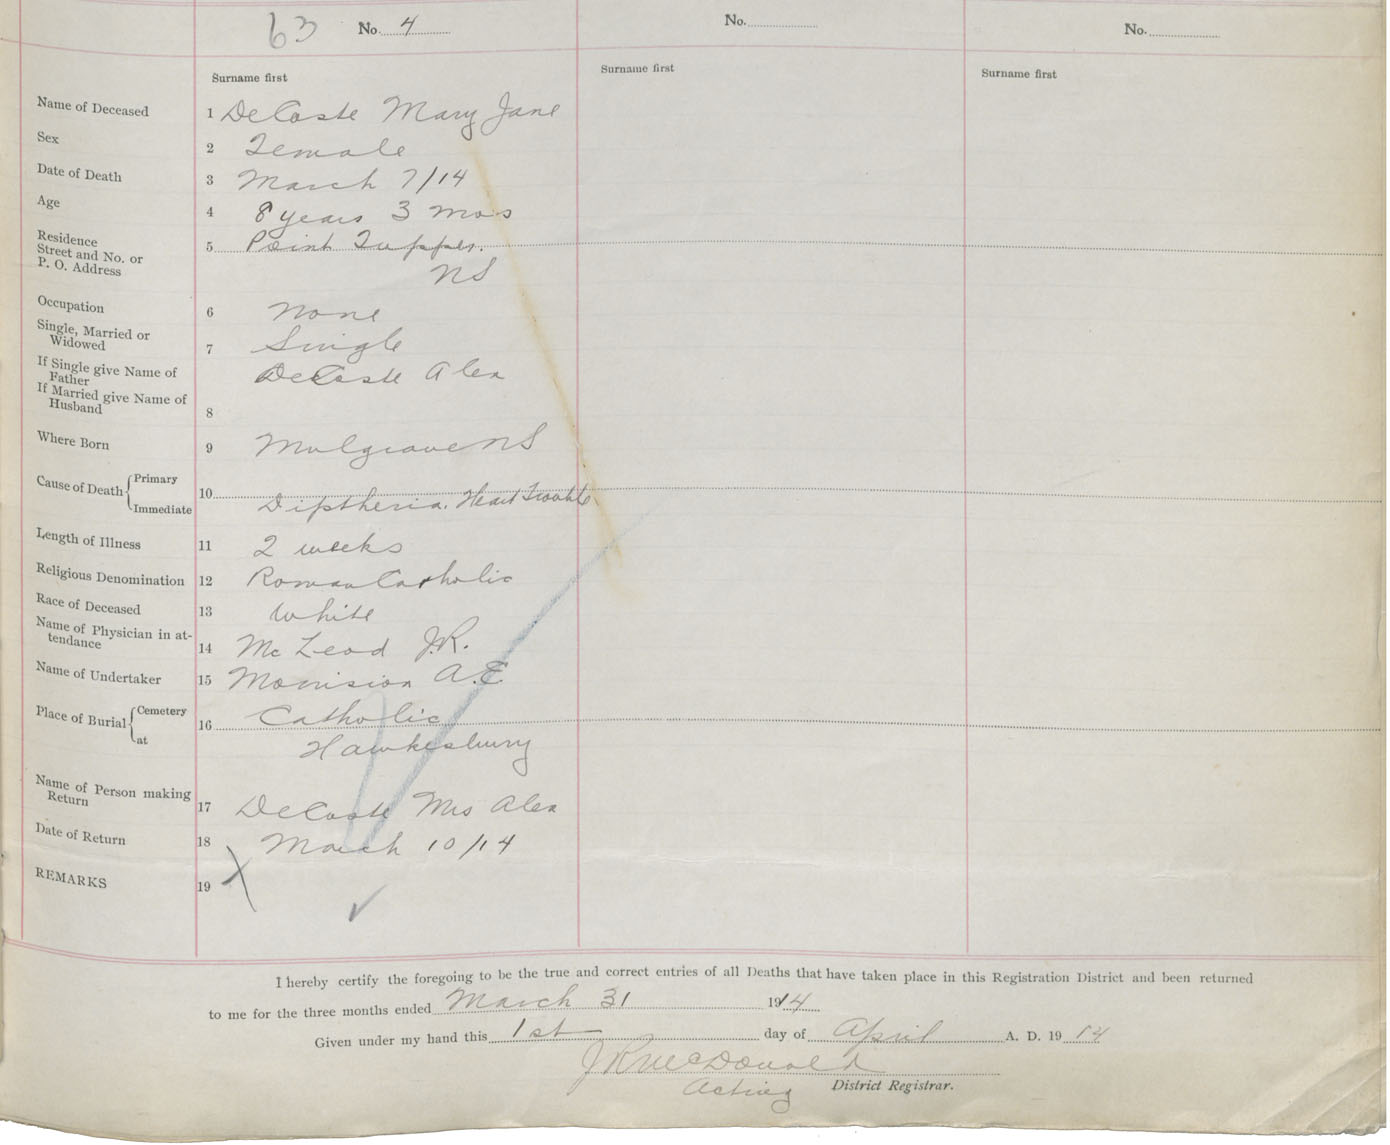 63 No. 4 No. No.
Surname first Surname first Surname first
Name of Deceased 1 DeCoste Mary Jane
Sex 2 Female
Date of Death 3 March 7/14
Age 4 8 years 3 mos
Residence
Street and No. or
P. O. Address 5 Point Tupper.
NS
Occupation 6 None
Single, Married or
Widowed 7 Single
If Single give Name of
Father DeCoste Alex
If Married give Name of
Husband 8
Where Born 9 Mulgrave NS
Cause of Death { Primary
Immediate 10 Diptheria. Heart Trouble
Length of Illness 11 2 weeks
Religious Denomination 12 Roman Catholic
Race of Deceased 13 White
Name of Physician in at-
tendance 14 Mc Leod J.R.
Name of Undertaker 15 Morrision A.E.
Place of Burial { Cemetery 16 Catholic
at Hawkesbury
Name of Person making
Return 17 DeCoste Mrs Alex
Date of Return 18 March 10/14
REMARKS 19
I hereby certify the foregoing to be the true and correct entries of all Deaths that have taken place in this Registration District and been returned
to me for the three months ended March 31 1914
Given under my hand this 1st day of April A. D. 19 14
J R McDonald
Acting District Registrar.